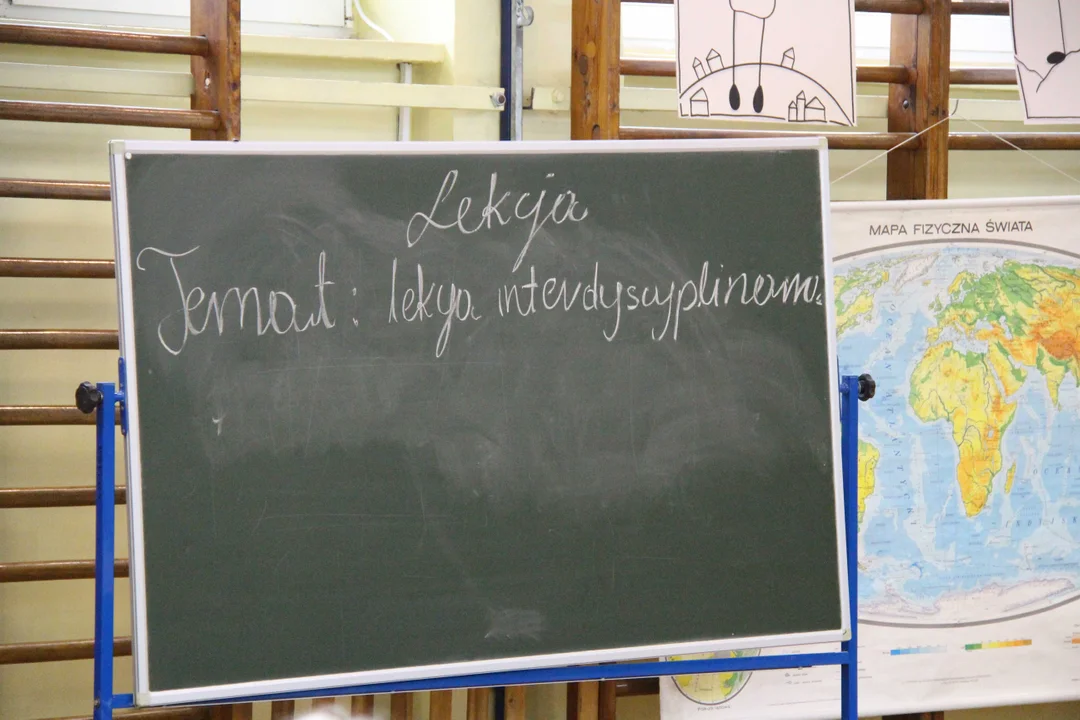 Lekcja
Temat: lekcja interdyscyplinarna
MAPA FIZYCZNA ŚWIATA